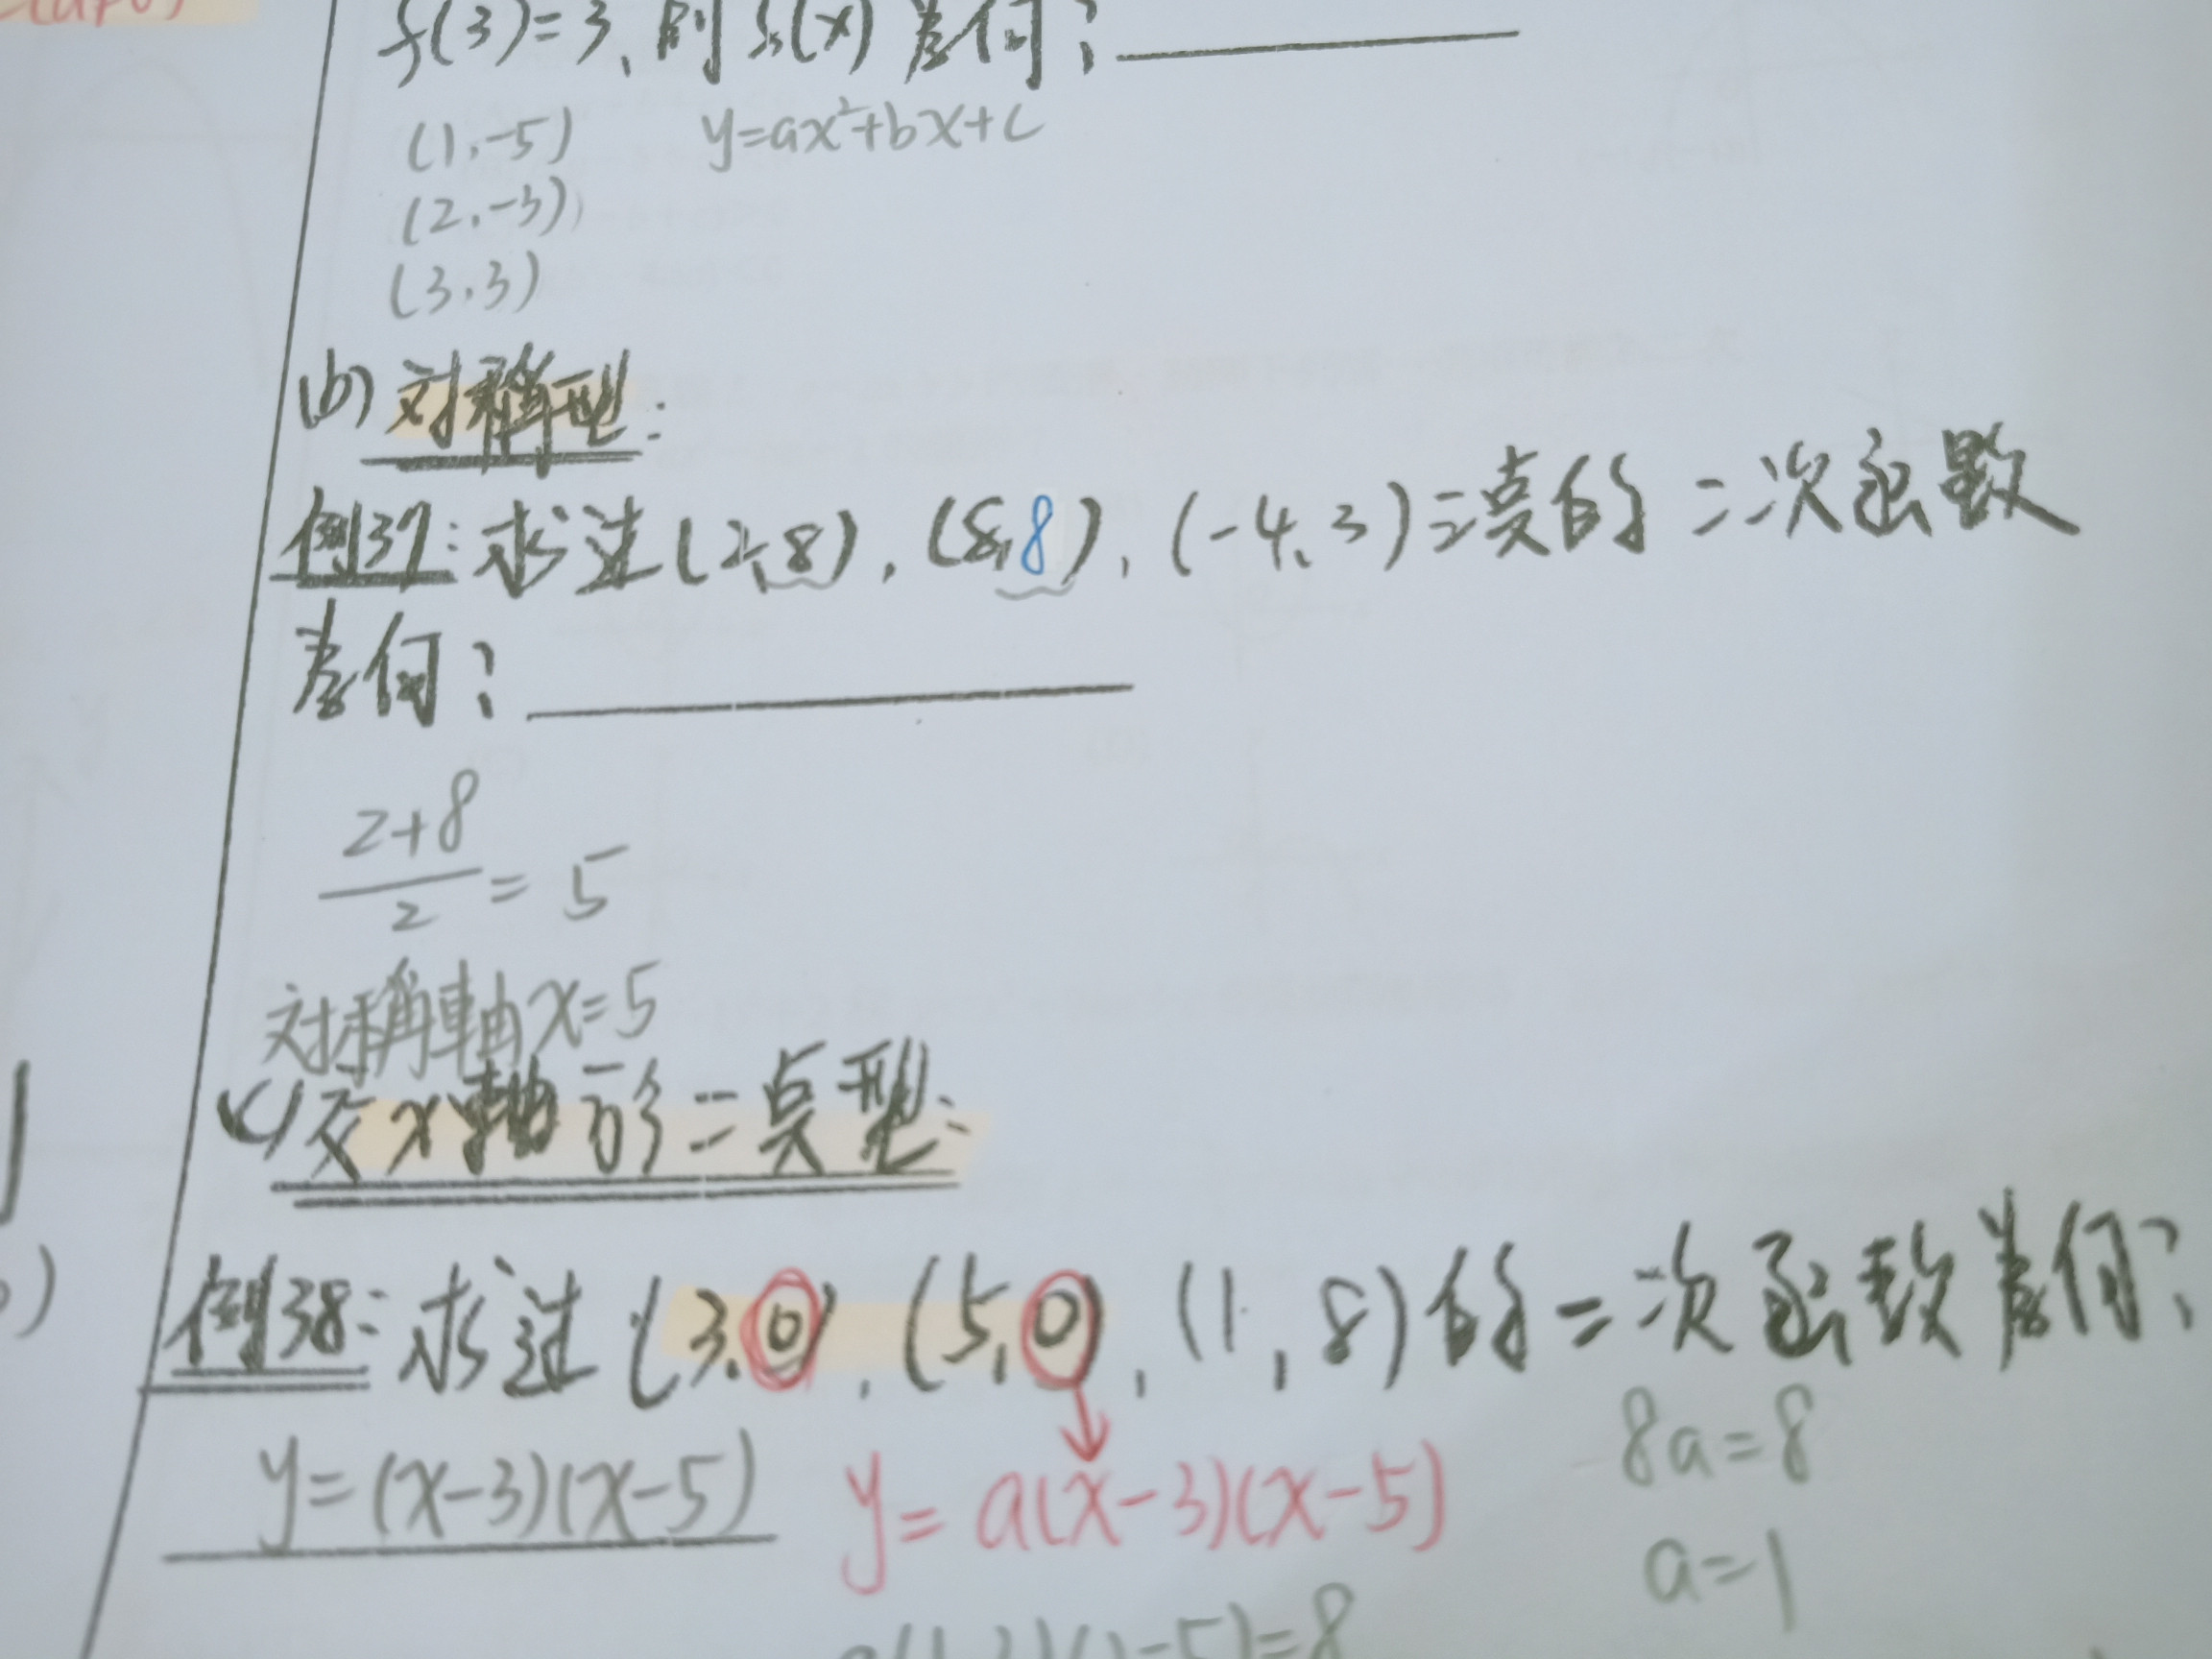 f(3)=3, 則 f(x) 為何?
(1,-5) y=ax²+bx+c
(2,-3)
(3,3)
(b) 对稱型:
例37: 求过(2,8), (8,8), (-4,3)三点的二次函数
為何?
2+8
2
= 5
对稱軸x=5
(c) 交x軸於二点型:
例38: 求过(3,0), (5,0), (1,8)的二次函数為何?
8a=8
y=(x-3)(x-5) y=a(x-3)(x-5)
a=1